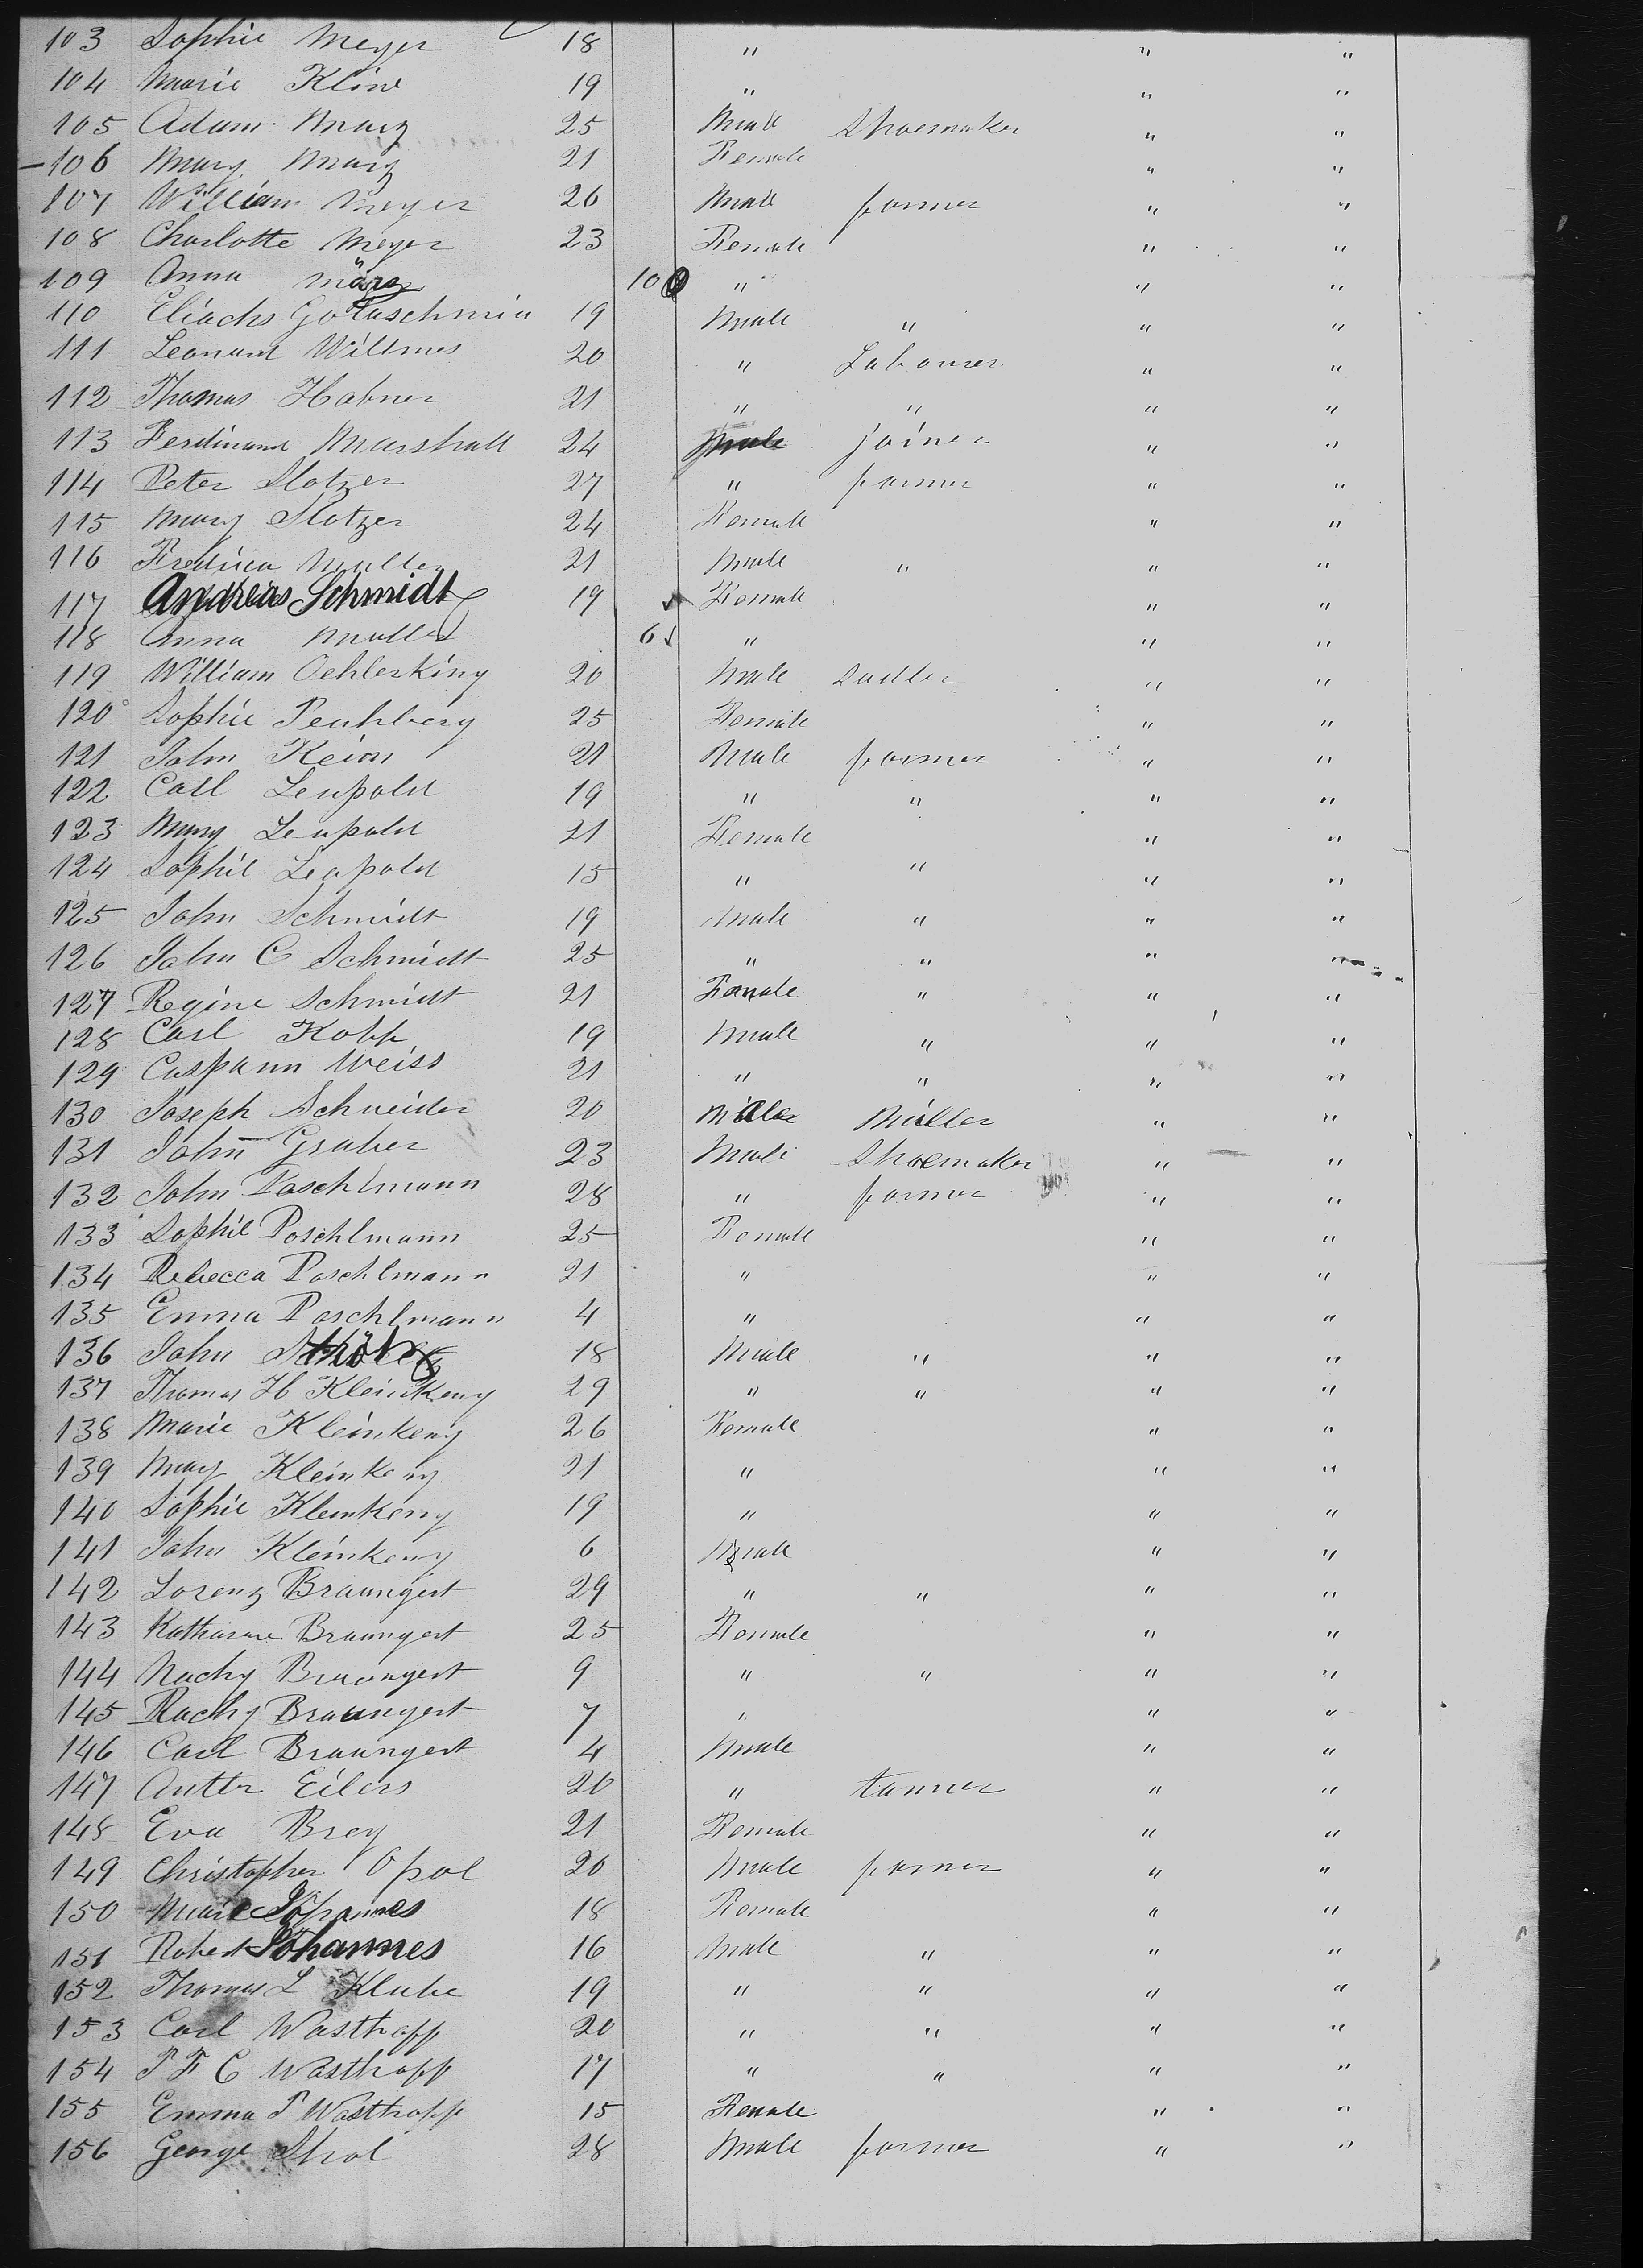 103 Sophie Meyer 18 " " "
104 Marie Kline 19 " " "
105 Adam Marz 25 Male Shoemaker " "
106 Mary Marz 21 Female " "
107 William Meyer 26 Male farmer " "
108 Charlotte Meyer 23 Female " "
109 Anna März 10 " " "
110 19 Male " " "
111 Leonard Willmes 20 " Labourer " "
112 Thomas Habner 21 " " " "
113 Ferdinand Marshall 24 Male joiner " "
114 Peter Slotzer 27 " farmer " "
115 Mary Slotzer 24 Female " "
116 Muller 21 Male " " "
117 Andreas Schmidt 19 Female " "
118 Anna Muller 6 " " "
119 William Oehlerking 20 Male Sadler " "
120 Sophie 25 Female " "
121 John Keim 21 Male farmer " "
122 Call Leupold 19 " " " "
123 Mary Leupold 21 Female " "
124 Sophie Leupold 15 " " " "
125 John Schmidt 19 Male " " "
126 John C Schmidt 25 " " " "
127 Regine Schmidt 21 Female " " "
128 Carl Kopp 19 Male " " "
129 Caspann Weiss 21 " " " "
130 Joseph Schneider 20 Male Miller " "
131 John Gruber 23 Male Shoemaker " "
132 John Poschlmann 28 " farmer " "
133 Sophie Poschlmann 25 Female " "
134 Rebecca Poschlmann 21 " " "
135 Emma Poschlmann 4 " " "
136 John 18 Male " " "
137 Thomas H Kleinkeny 29 " " " "
138 Marie Kleinkeny 26 Female " "
139 Mary Kleinkeny 21 " " "
140 Sophie Kleinkeny 19 " " "
141 John Kleinkeny 6 Male " "
142 Lorenz Braungert 29 " " " "
143 Katharine Braungert 25 Female " "
144 Nachy Braungert 9 " " " "
145 Rachy Braungert 7 " " "
146 Carl Braungert 4 Male " "
147 Eilers 20 " tanner " "
148 Eva Brey 21 Female " "
149 Christopher Opol 20 Male farmer " "
150 Marie Johannes 18 Female " "
151 Robert Johannes 16 Male " " "
152 Thomas L Klube 19 " " " "
153 Carl Wasthopp 20 " " " "
154 P F C Wasthopp 17 " " " "
155 Emma P Wasthopp 15 Female " "
156 George Strol 28 Male farmer " "